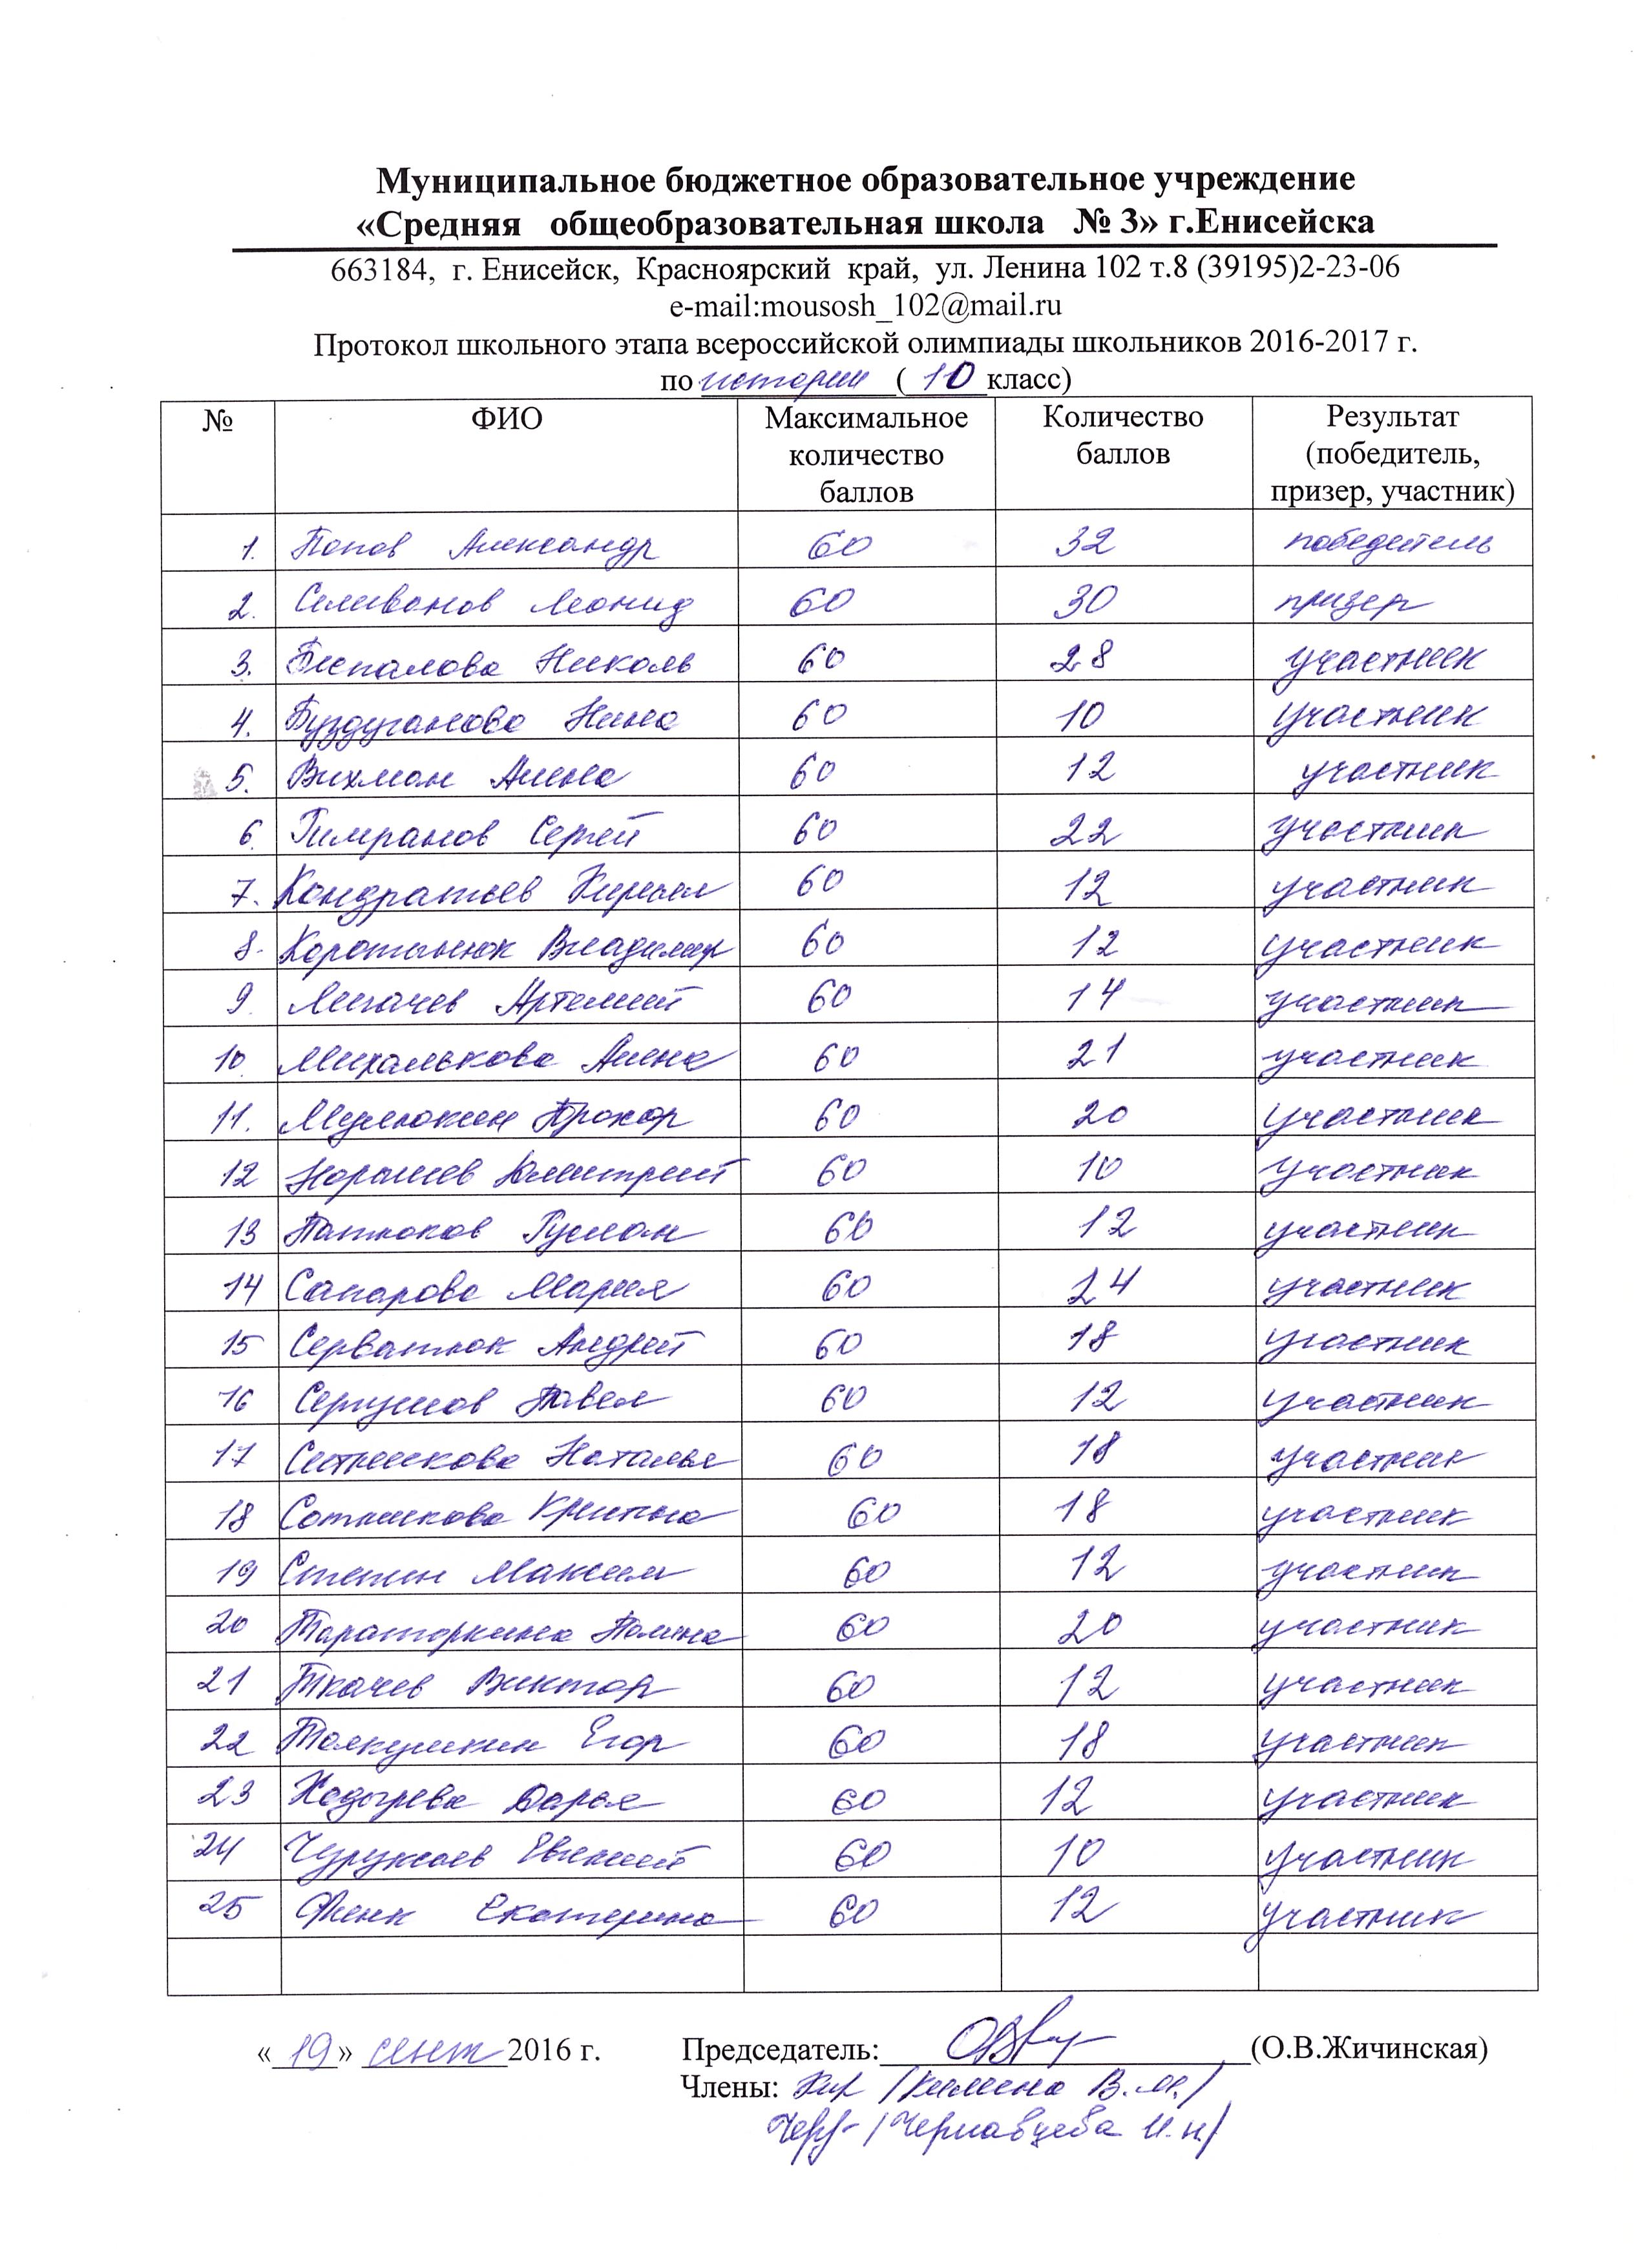 Муниципальное бюджетное образовательное учреждение
«Средняя общеобразовательная школа № 3» г.Енисейска
663184, г. Енисейск, Красноярский край, ул. Ленина 102 т.8 (39195)2-23-06
e-mail:mousosh_102@mail.ru
Протокол школьного этапа всероссийской олимпиады школьников 2016-2017 г.
по истории (10 класс)
№ ФИО Максимальное количество баллов Количество баллов Результат (победитель, призер, участник)
1. Попов Александр 60 32 победитель
2. Селиванов Леонид 60 30 призер
3. Беспалова Николь 60 28 участник
4. Буздуганова Нина 60 10 участник
5. Вихман Алена 60 12 участник
6 Гимранов Сергей 60 22 участник
7. Кондратьев Кирилл 60 12 участник
8. Коротынюк Владимир 60 12 участник
9 Лигачев Артемий 60 14 участник
10 Михалькова Алена 60 21 участник
11. Мулюкин Прохор 60 20 участник
12 Дмитрий 60 10 участник
13 Патюков Руслан 60 12 участник
14 Сапарова Мария 60 24 участник
15 Серватюк Андрей 60 18 участник
16 Павел 60 12 участник
17 Наталья 60 18 участник
18 Сотникова Кристина 60 18 участник
19 Максим 60 12 участник
20 Тараторкина Полина 60 20 участник
21 Ткачев Виктор 60 12 участник
22 Толкушкин Егор 60 18 участник
23 Ходырева Дарья 60 12 участник
24 Евгений 60 10 участник
25 Фенк Екатерина 60 12 участник
«19» сент 2016 г. Председатель: (О.В.Жичинская)
Члены: В.М./
/Чернавцева И.Н/